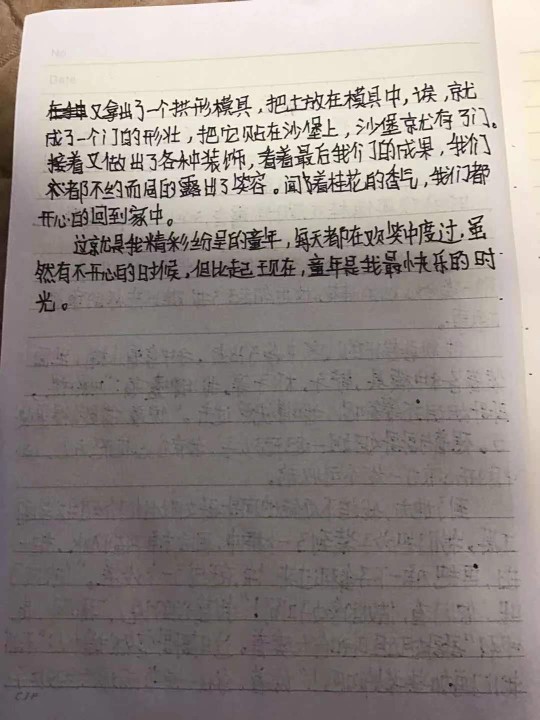 No.
Date
又拿出了一个拱形模具，把土放在模具中，诶，就
成了一个门的形壮，把它贴在沙堡上，沙堡就有了门。
接着又做出了各种装饰，看着最后我们的成果，我们
都不约而同的露出了笑容。闻着桂花的香气，我们都
开心的回到家中。
这就是我精彩纷呈的童年，每天都在欢笑中度过，虽
然有不开心的时候，但比起现在，童年是我最快乐的时
光。